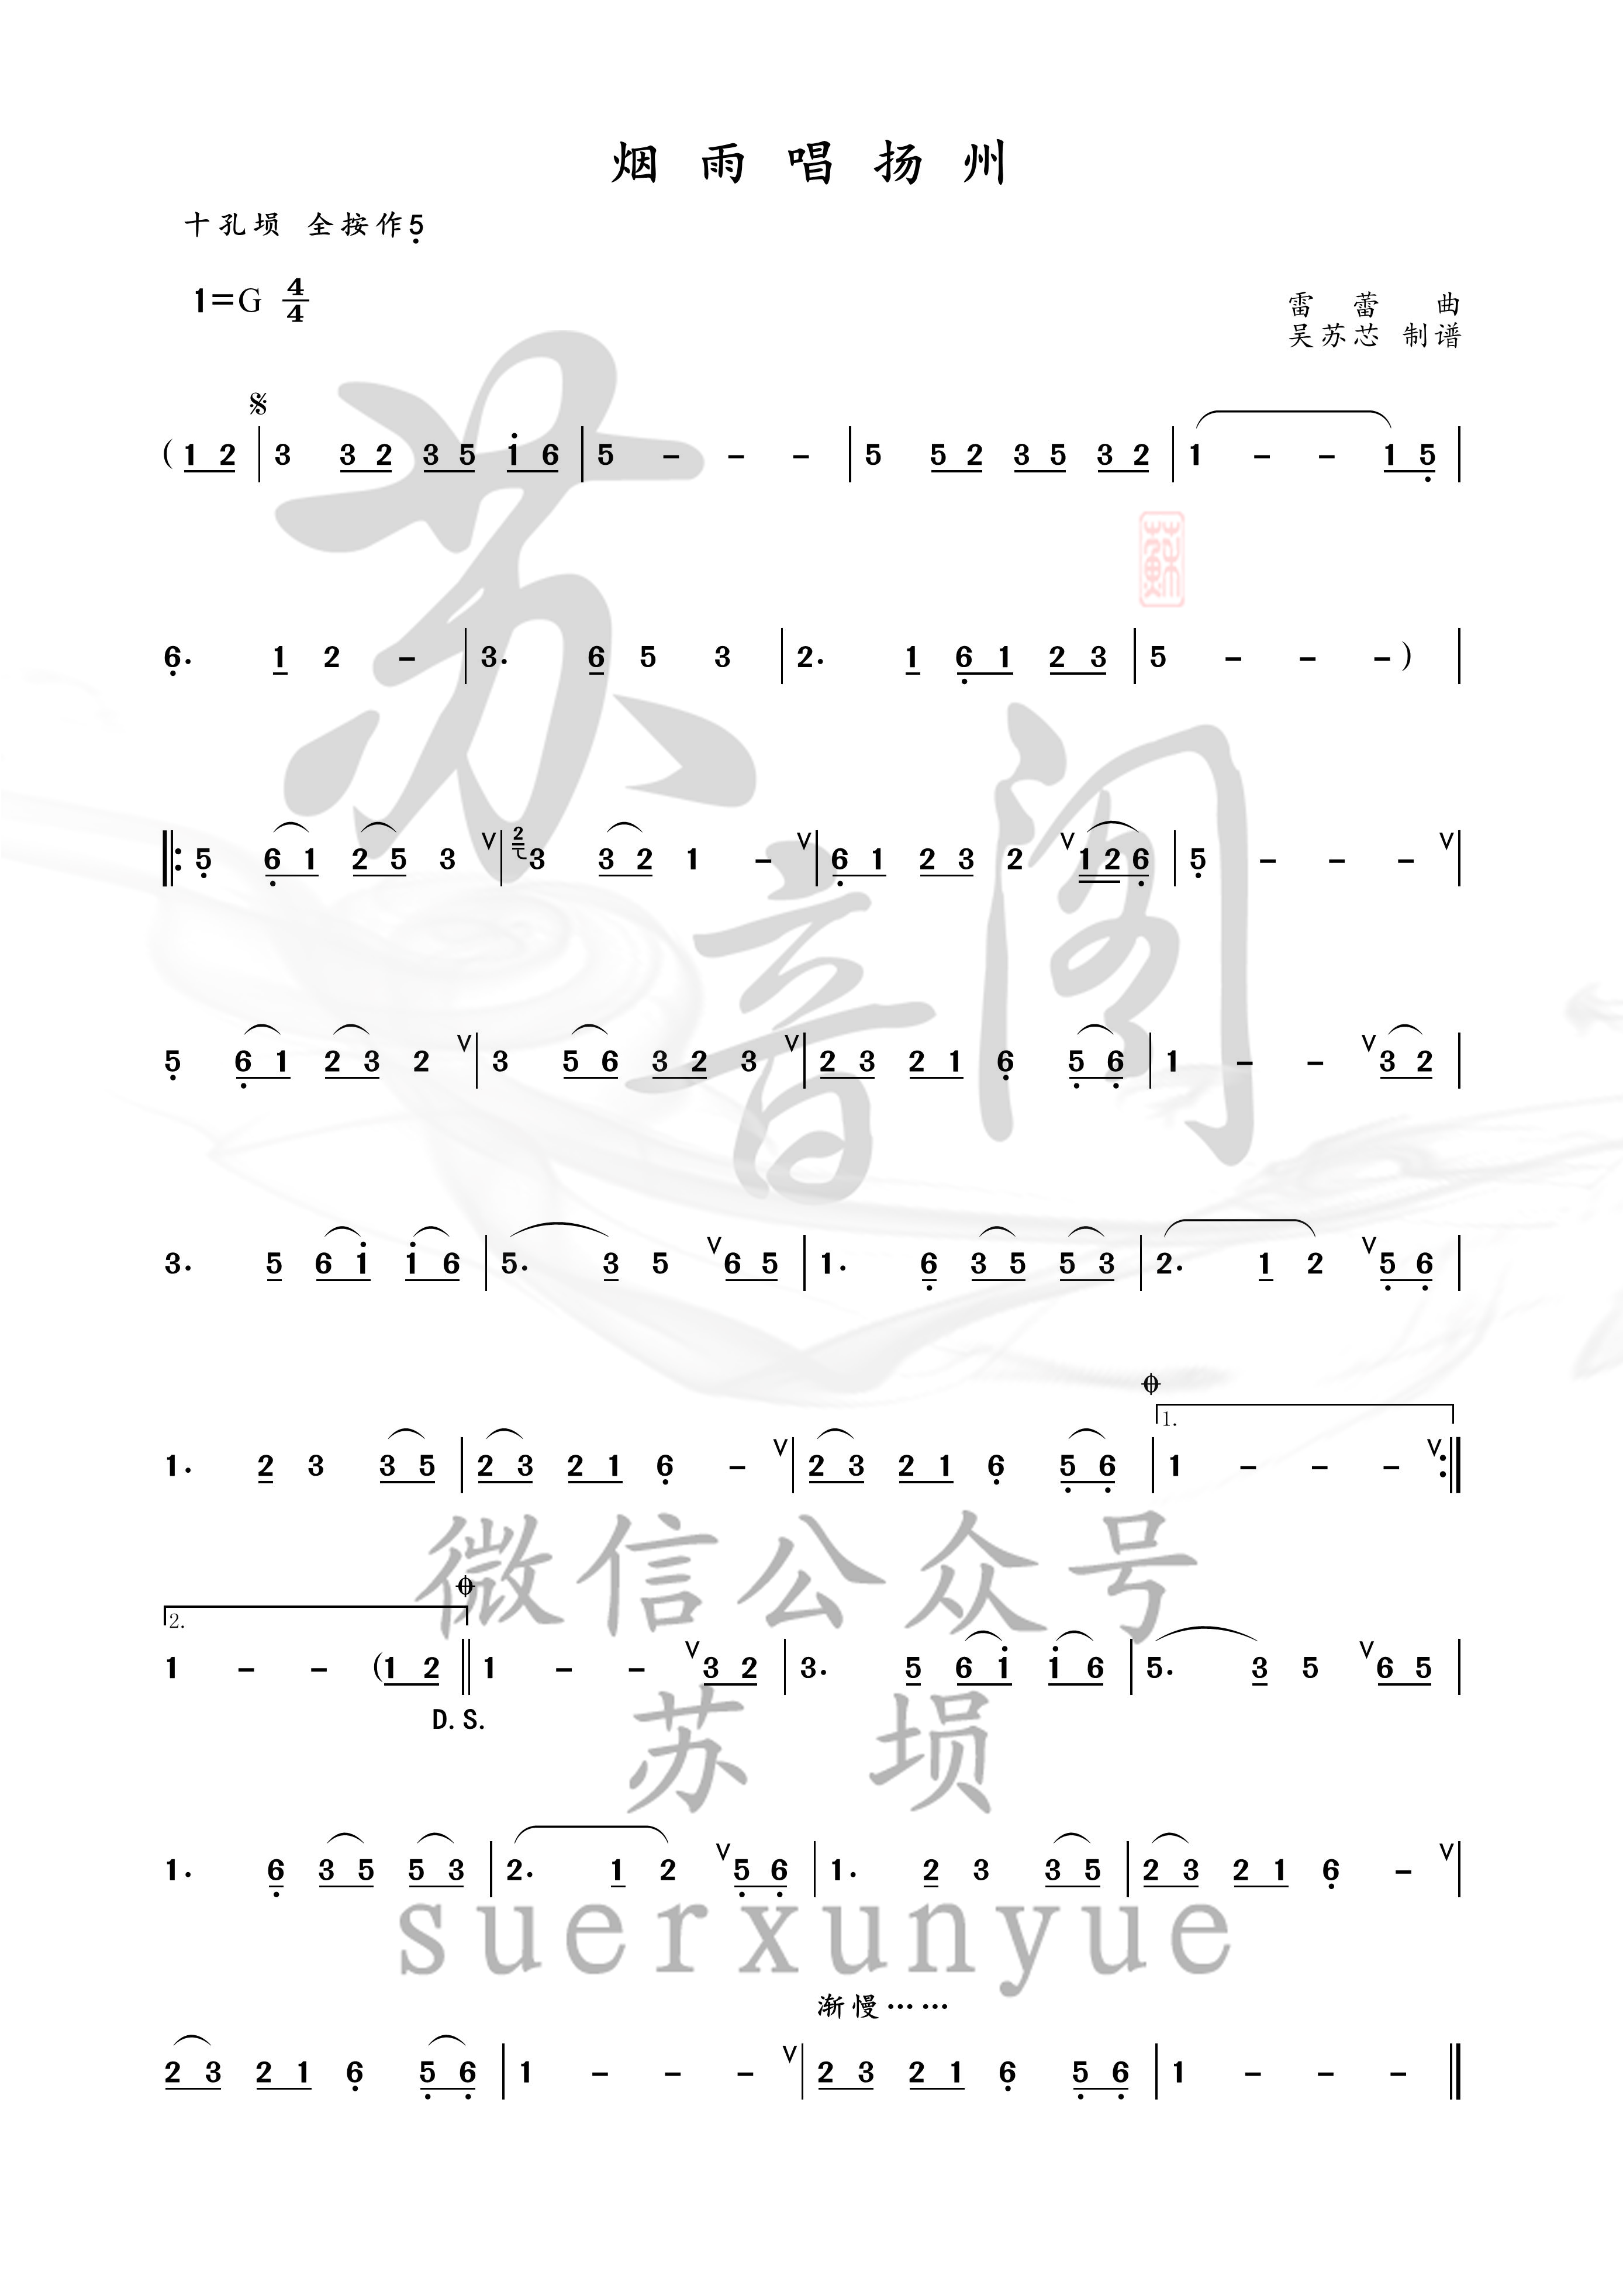 烟雨唱扬州
十孔埙 全按作5̣
1=G 4/4
雷 蕾 曲
吴苏芯 制谱
𝄋
( 1 2 | 3 3 2 3 5 i 6 | 5 - - - | 5 5 2 3 5 3 2 | 1 - - 1 5̣ |
6̣. 1 2 - | 3. 6 5 3 | 2. 1 6̣ 1 2 3 | 5 - - - ) |
蘇
|: 5̣ 6̣ 1 2 5 3 V | 2 3 3 2 1 - V | 6̣ 1 2 3 2 V 1 2 6̣ | 5̣ - - - V |
5̣ 6̣ 1 2 3 2 V | 3 5 6 3 2 3 V | 2 3 2 1 6̣ 5̣ 6̣ | 1 - - V 3 2 |
3. 5 6 i i 6 | 5. 3 5 V 6 5 | 1. 6̣ 3 5 5 3 | 2. 1 2 V 5̣ 6̣ |
𝄌
1.
1. 2 3 3 5 | 2 3 2 1 6̣ - V | 2 3 2 1 6̣ 5̣ 6̣ | 1 - - - V :|
𝄌
2.
1 - - ( 1 2 || 1 - - V 3 2 | 3. 5 6 i i 6 | 5. 3 5 V 6 5 |
D.S.
1. 6̣ 3 5 5 3 | 2. 1 2 V 5̣ 6̣ | 1. 2 3 3 5 | 2 3 2 1 6̣ - V |
渐慢……
2 3 2 1 6̣ 5̣ 6̣ | 1 - - - V | 2 3 2 1 6̣ 5̣ 6̣ | 1 - - - ||
苏音阁
微信公众号
苏 埙
suerxunyue